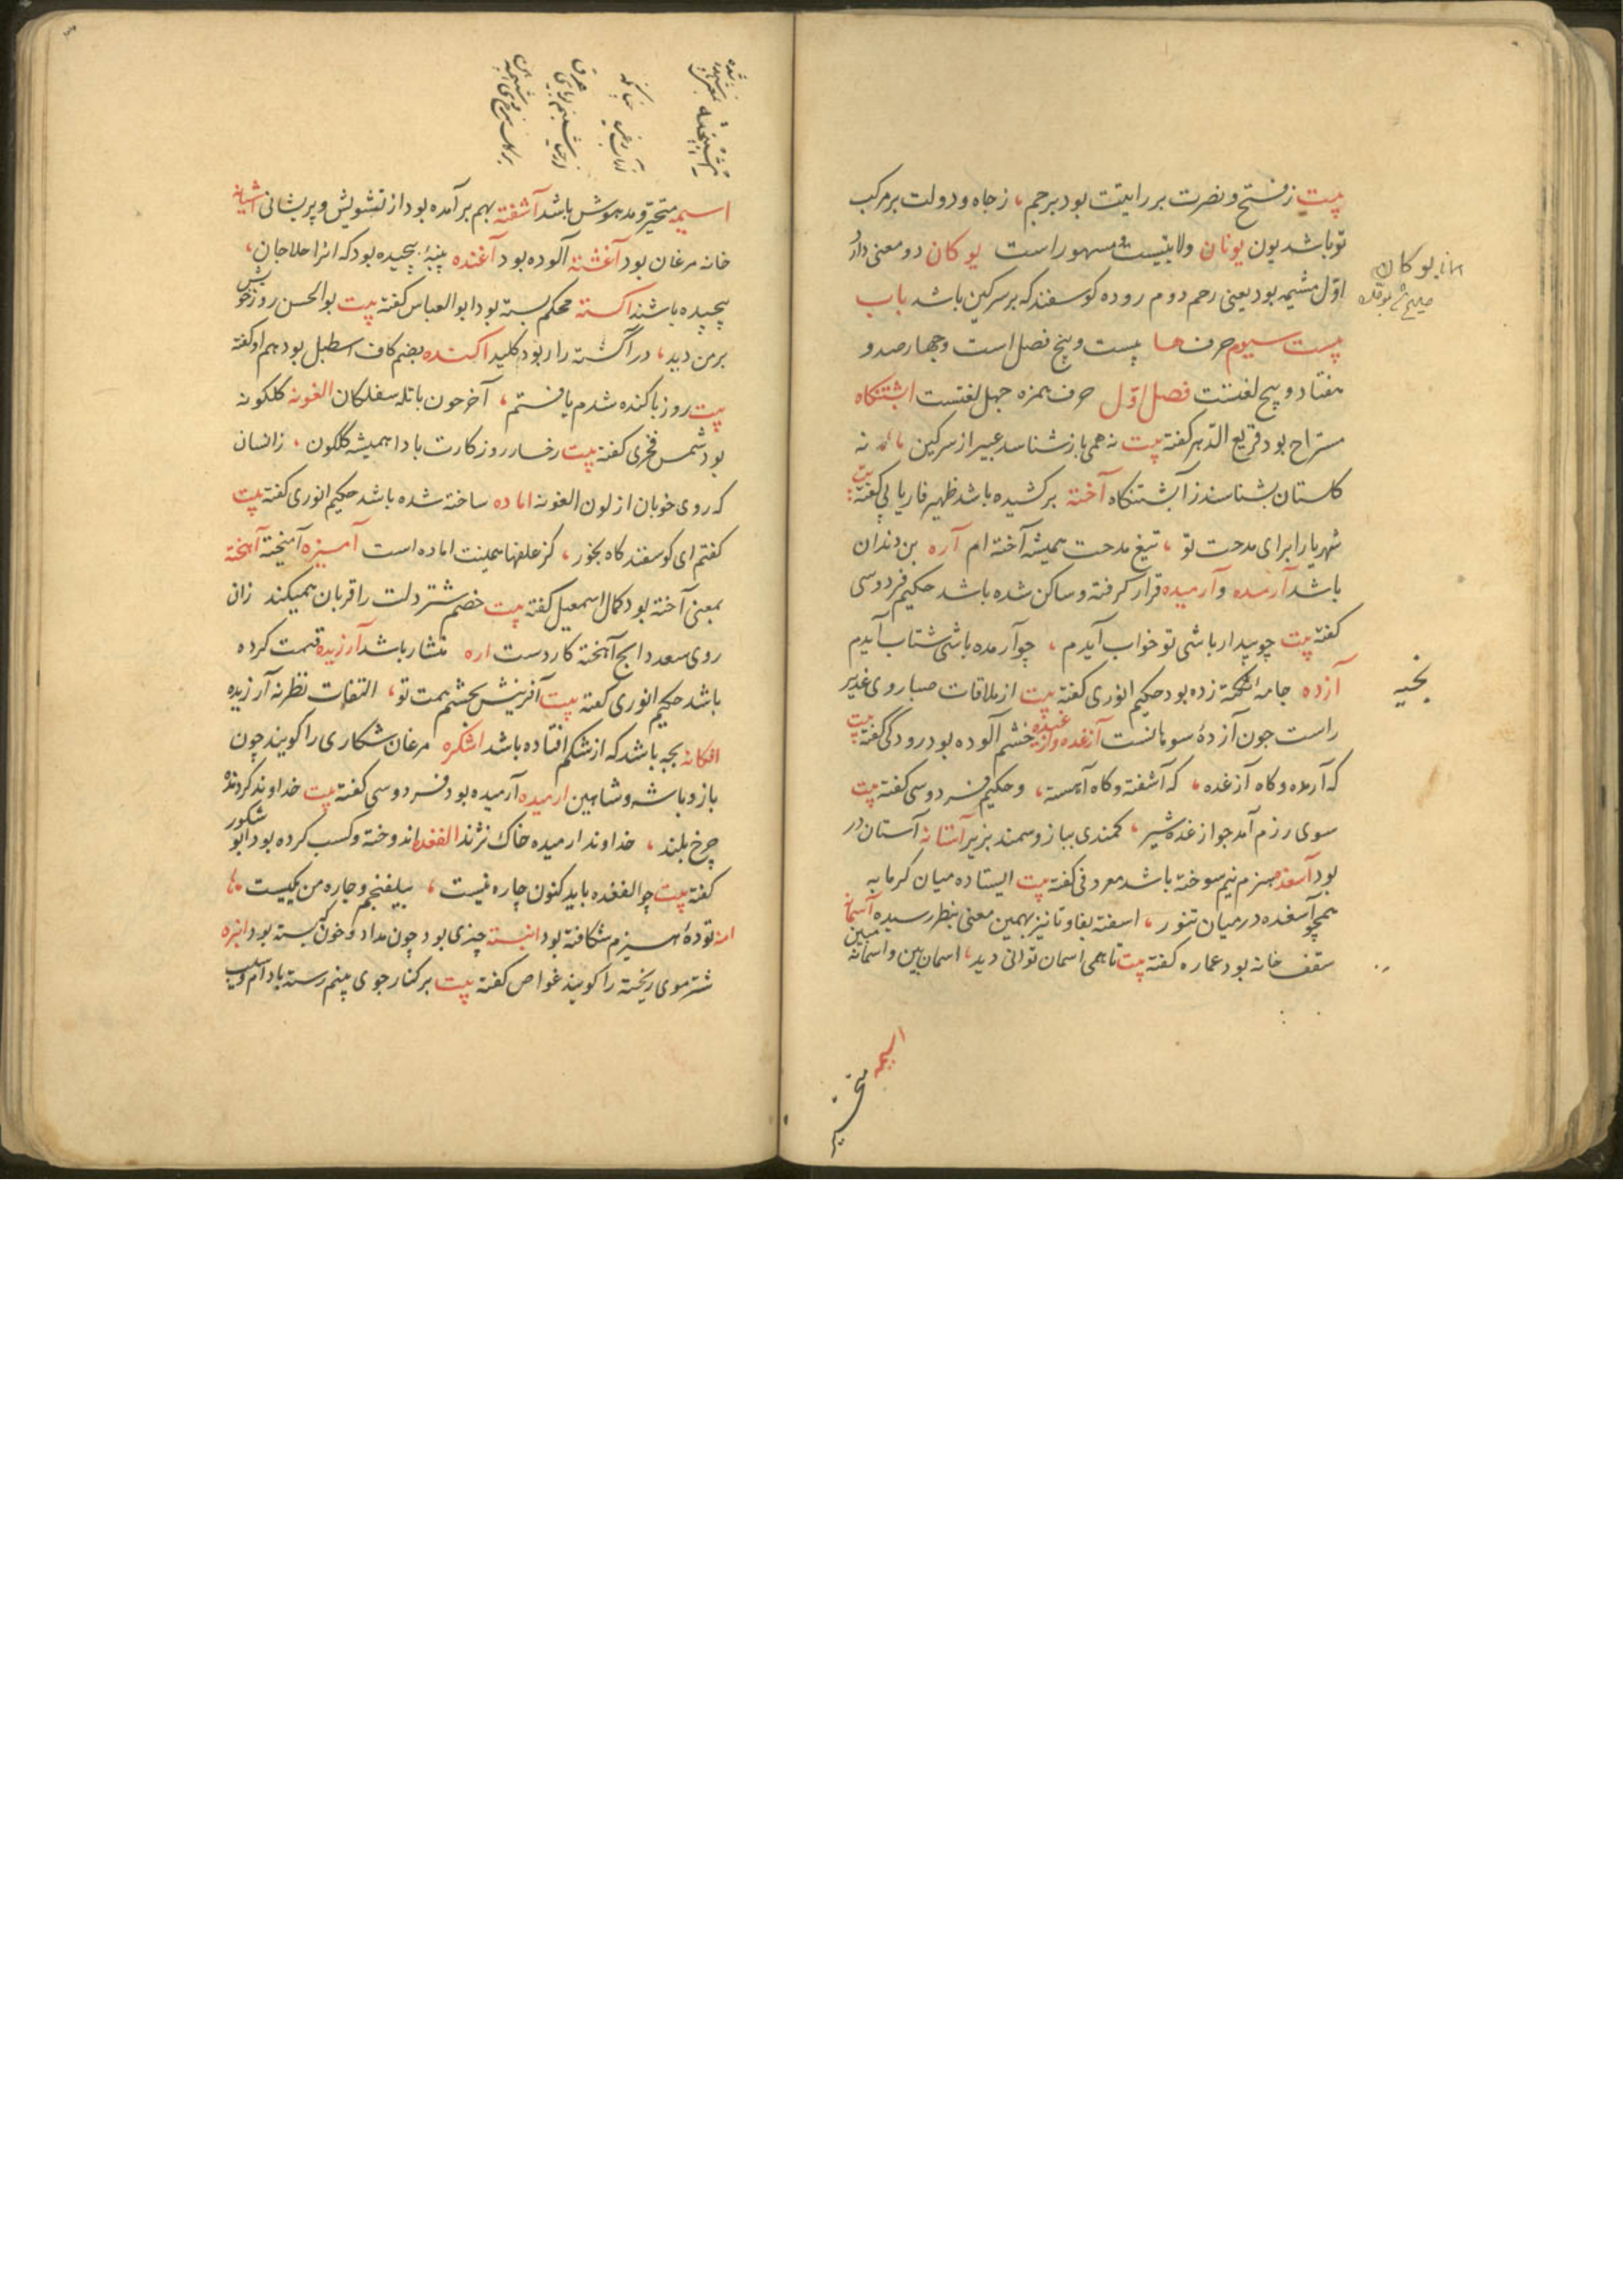 بیت ز فتح و نصرت بر رایتت بود برجم ، ز جاه و دولت بر مرکب
تو باشد یون یونان ولایتیست مشهور است یوکان دو معنی دارد
اوّل مشیمه بود یعنی رحم دوم روده کوسفند که بر سرکین باشد باب
بیست سیوم حرف ها بیست و پنج فصل است و چهارصد و
هفتاد و پنج لغتست فصل اوّل حرف همزه چهل لغتست ابشتنکاه
مستراح بود قریع الدّهر کفته بیت نه همی باز شناسد عبیر از سرکین ، نه
کلستان بشناسد ز آبشتنکاه آخته بر کشیده باشد ظهیر فاریابی کفته بیت
شهریارا برای مدحت تو ، تیغ مدحت همیشه آخته ام آره بن دندان
باشد آرمده و آرمیده قرار کرفته و ساکن شده باشد حکیم فردوسی
کفته بیت چو بیدار باشی تو خواب آیدم ، چو آرمده باشی شتاب آیدم
آزده جامه زده بود حکیم انوری کفته بیت از ملاقات صبا روی غدیر
راست جون آزدهٔ سوهانست آزغده و خشم آلوده بود رودکی کفته بیت
که آرمده و کاه آزغده ، که آشفته و کاه آهسته ، و حکیم فردوسی کفته بیت
سوی رزم آمد جو ازغده شیر ، کمندی ببازو سمند بزیر آستانه آستان در
بود آسغده هیزم نیم سوخته باشد معروفی کفته بیت ایستاده میان کرمابه
همچو آسغده در میان تنور ، اسفته بفا و تا نیز بهمین معنی بنظر رسیده آسمانه
سقف خانه بود عماره کفته بیت تا همی اسمان توانی دید ، اسمان بین و اسمانه مبین
یوکان
بخیه
اسیمه
متحیر
اسیمه متحیر و مدهوش باشد آشفته بهم برآمده بود از تشویش و پریشانی آشیانه
خانه مرغان بود آغشته آلوده بود آغنده پنبهٔ پیچیده بود که انرا حلاجان ،
پیچیده باشند اکسته محکم بسته بود ابوالعباس کفته بیت بوالحسن روز خویش
بر من دید ، در آکسته را ربود کلید اکنده بضم کاف اسطبل بود هم او کفته
بیت روز باکنده شدم یافتم ، آخر جون باتله سفلکان الغونه کلکونه
بود شمس فخری کفته بیت رخسار روزکارت بادا همیشه کلکون ، زانسان
که روی خوبان از لون الغونه اماده ساخته شده باشد حکیم انوری کفته بیت
کفتم ای کوسفند کاه بخور ، کز علفها همینت اماده است آمیزه آمیخته آهخته
بمعنی آخته بود کمال اسمعیل کفته بیت خصم شتر دلت را قربان همیکند زان
روی سعد ذابح آهخته کارد است اره منشار باشد آرزیده قیمت کرده
باشد حکیم انوری کفته بیت آفرینش بچشم همت تو ، التفات نظر نه آرزیده
افکانه بچه باشد که از شکم افتاده باشد اشکره مرغان شکاری را کویند چون
باز و باشه و شاهین ارمیده آرمیده بود فردوسی کفته بیت خداوند کردنده
چرخ بلند ، خداوند ارمیده خاک نژند الفغده اندوخته و کسب کرده بود ابو شکور
کفته بیت چو الفغده باید کنون چاره نیست ، بیلفنجم و چاره من یکیست
امه تودهٔ هیزم شکافته بود انبسته چیزی بود چون مداد و خون که بسته بود انبره
شتر موی ریخته را کویند غواص کفته بیت بر کنار جوی بینم رسته بادام و سیب